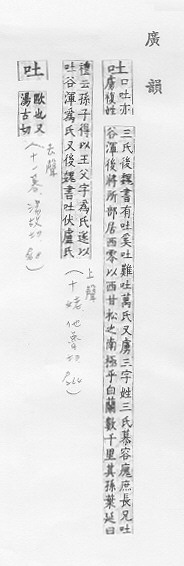 廣韻
吐
口吐亦
口虜複姓
三氏後魏書有吐奚吐難吐萬氏又虜三字姓三氏慕容廆庶長兄吐
谷渾後將所部居西零以西甘松之南極乎白蘭數千里其孫葉延曰
禮云孫子得以王父字為氏遂以
吐谷渾為氏又後魏書吐伏盧氏
上聲
(十姥 他魯切 P266)
吐
歐也又
湯古切
去聲
(十一暮 湯故切